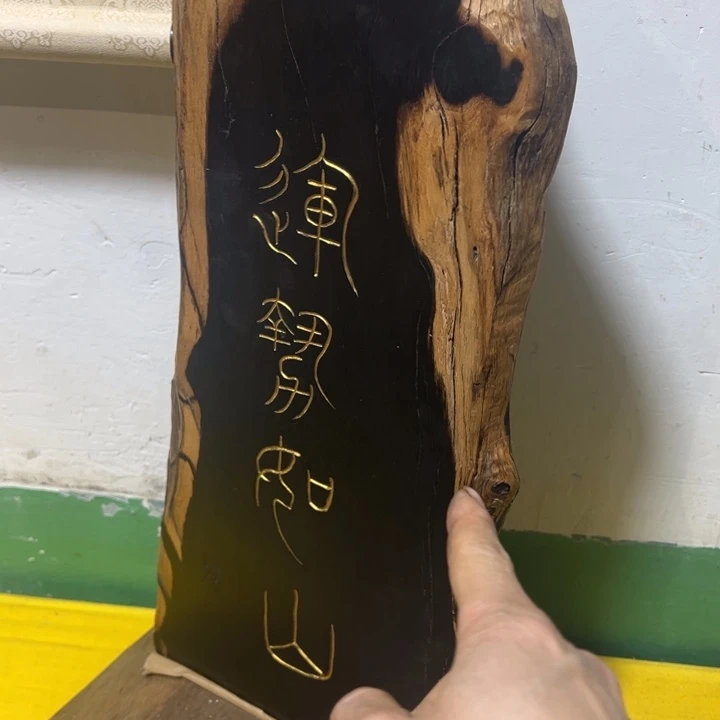 運勢如山